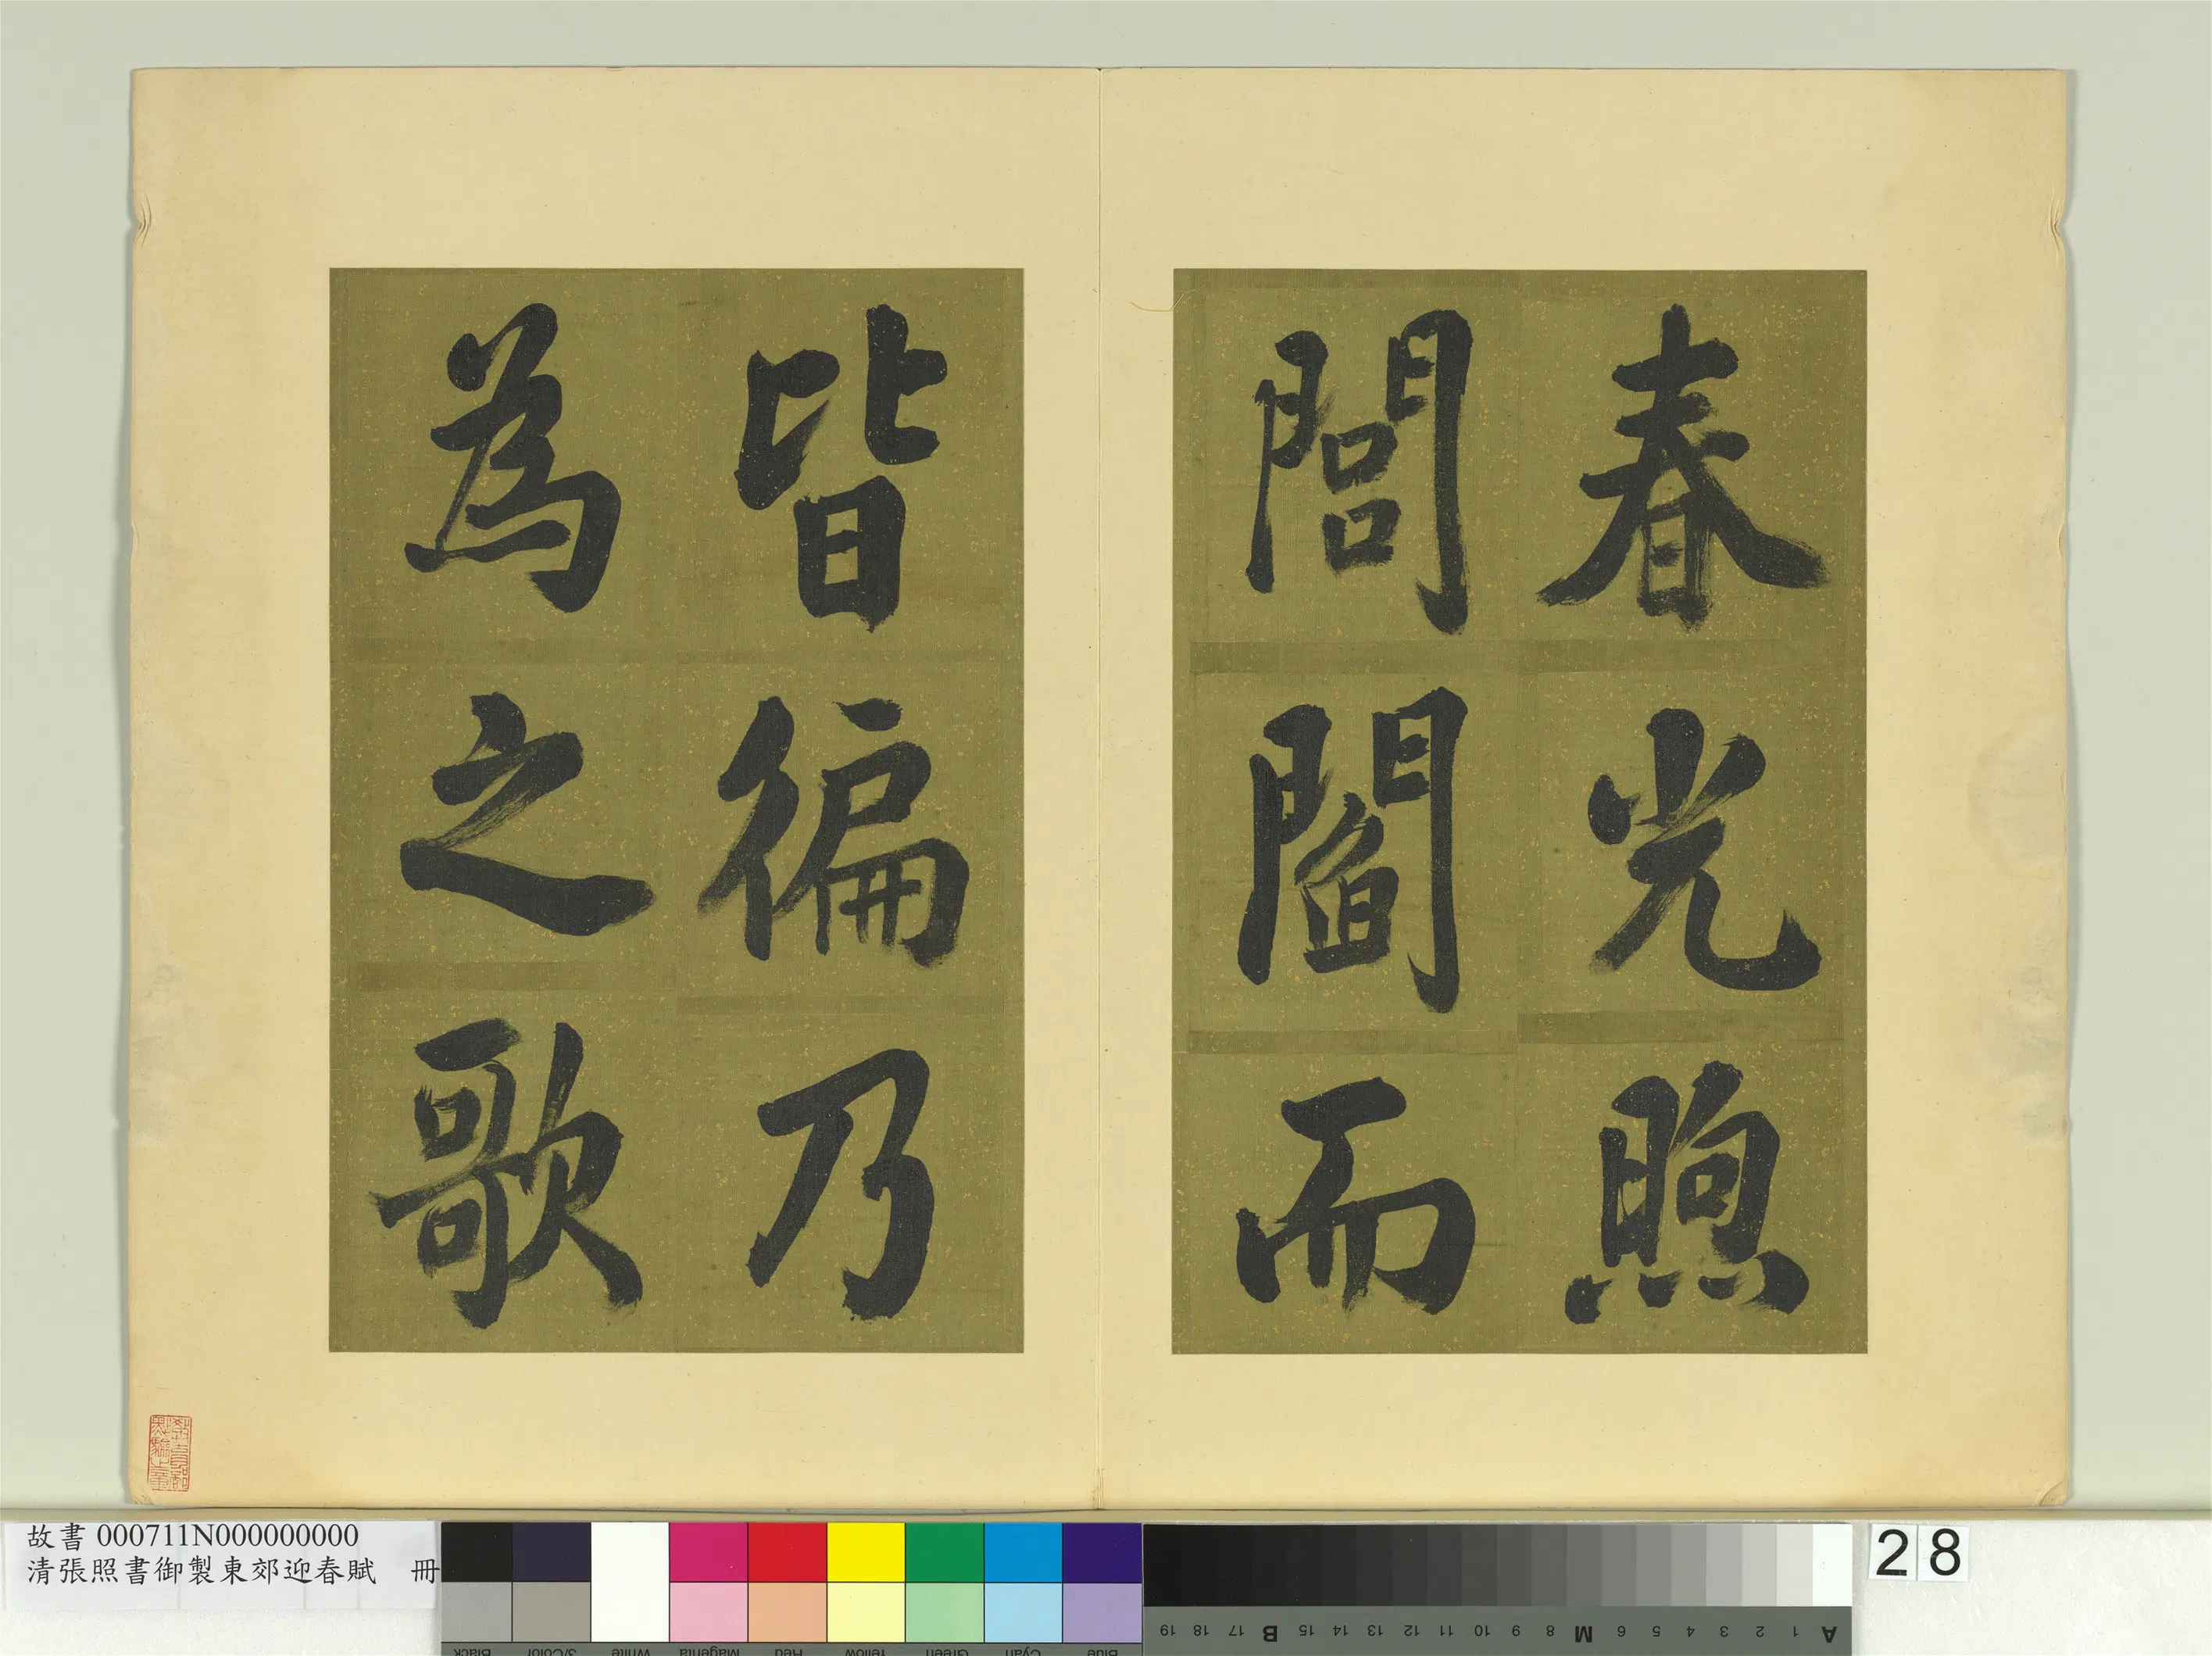 春光煦
閭閻而
皆徧乃
為之歌
故書 000711N000000000
清張照書御製東郊迎春賦 冊
28
Black
3/Color
White
Magenta
Red
Yellow
Green
Cyan
Blue
19 18 17 B 15 14 13 12 11 10 9 8 M 6 5 4 3 2 1 A